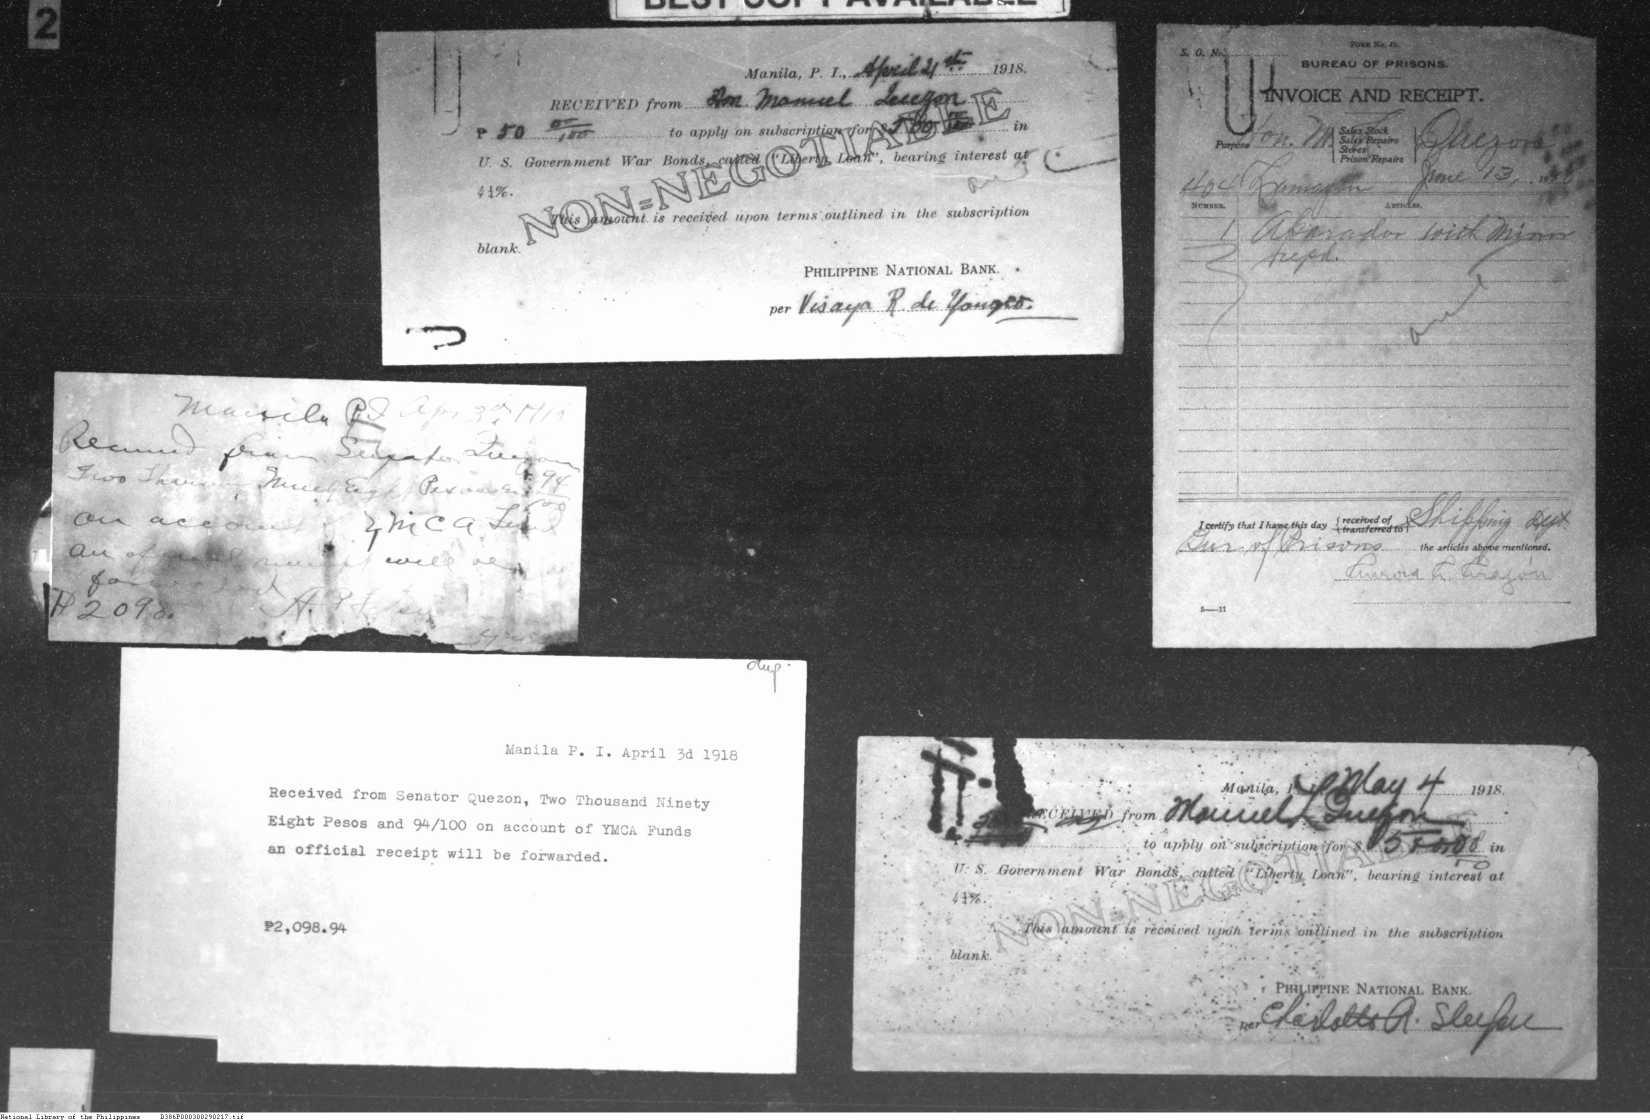 2
BEST COPY AVAILABLE
Manila, P. I., April 1918.
RECEIVED from Hon. Manuel Quezon
₱ 50 00/100 to apply on subscription for $ in
U. S. Government War Bonds, called "Liberty Loan", bearing interest at
4¼%.
This amount is received upon terms outlined in the subscription
blank.
NON-NEGOTIABLE
PHILIPPINE NATIONAL BANK.
per Visaya R. de Yangco.
S. O. No.
FORM No.
BUREAU OF PRISONS.
INVOICE AND RECEIPT.
Hon. M. L. Quezon
Purpose
Sales Stock
Sales Repairs
Stores
Prison Repairs
June 13,
NUMBER. ARTICLES.
1 Aparador with Mirror
repd.
I certify that I have this day received of
transferred to Shipping Dept
Bur. of Prisons the articles above mentioned.
Aurora A. Aragón
5—11
Manila P I Apr 3d
Received from Senator Quezon
Two Thousand Ninety Eight Pesos 94
on account of YMCA Fund
an official receipt will be
forwarded
₱2098.
dup.
Manila P. I. April 3d 1918
Received from Senator Quezon, Two Thousand Ninety
Eight Pesos and 94/100 on account of YMCA Funds
an official receipt will be forwarded.
₱2,098.94
Manila, P May 4 1918.
RECEIVED from Manuel L Quezon
to apply on subscription for $ in
U. S. Government War Bonds, called "Liberty Loan", bearing interest at
4¼%.
This amount is received upon terms outlined in the subscription
blank.
NON-NEGOTIABLE
PHILIPPINE NATIONAL BANK.
per Charlotte A.
National Library of the Philippines D386P000300290217.tif